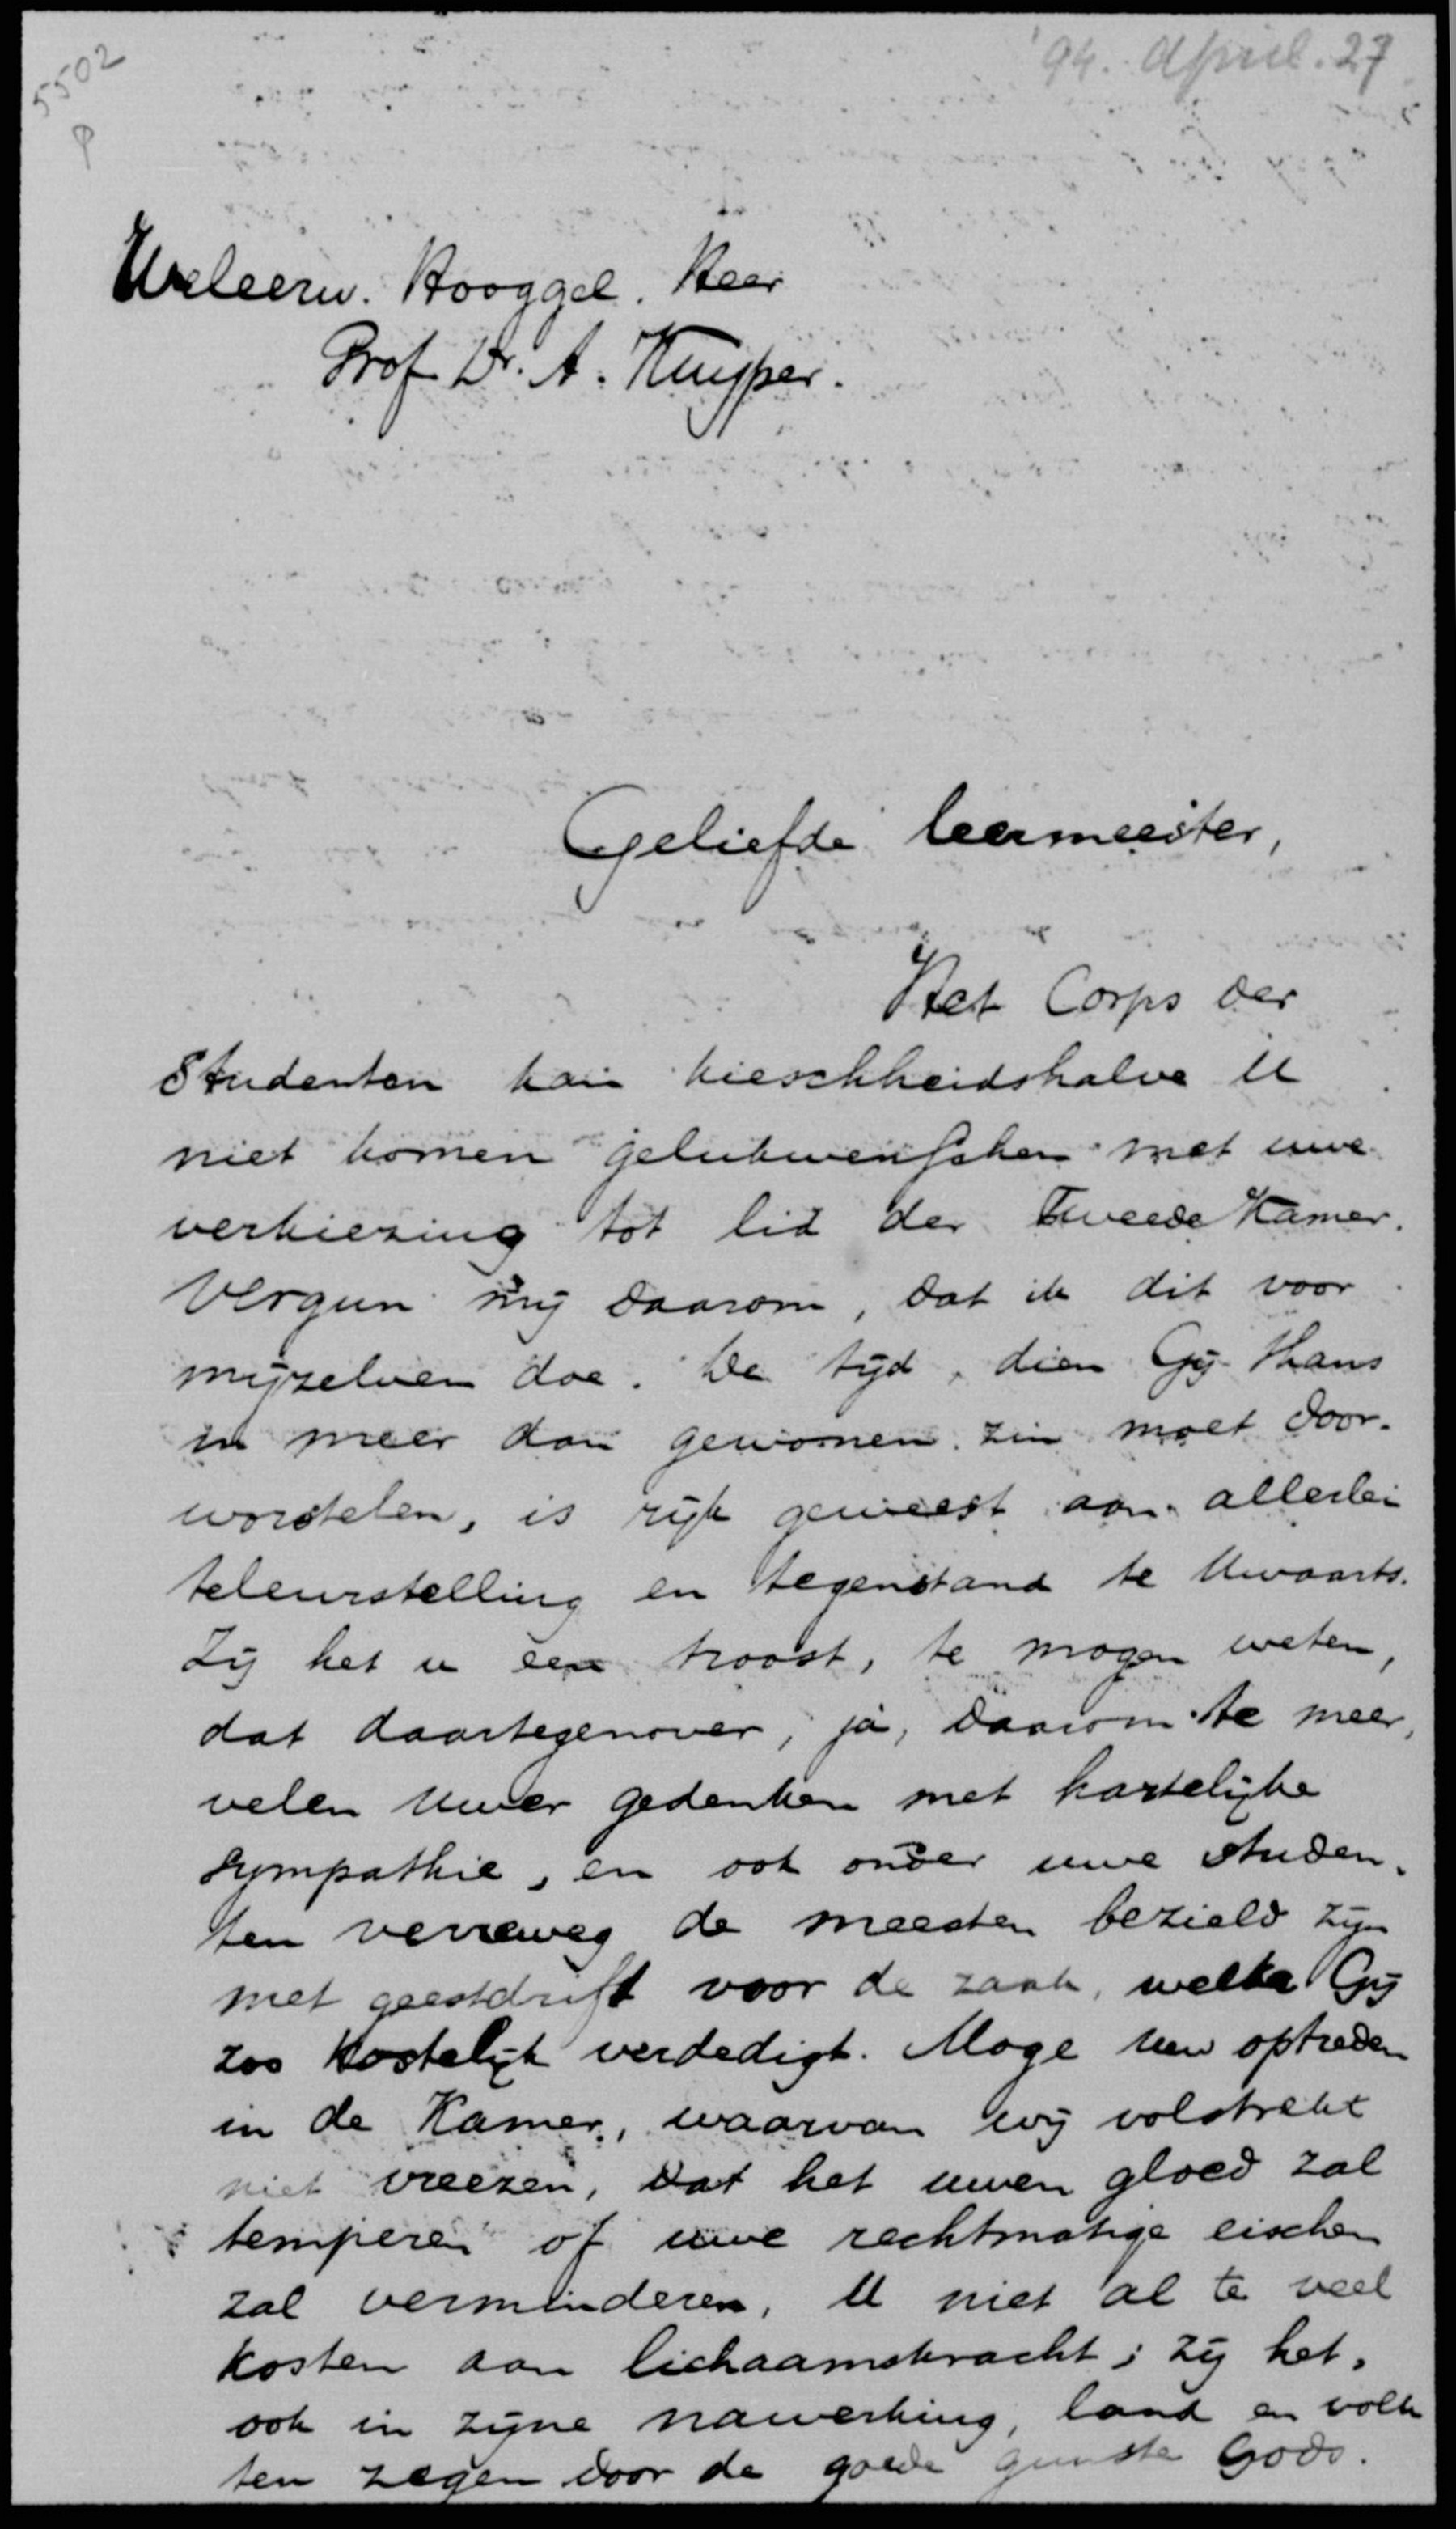 5502
P
'94. April. 27
Weleerw. Hooggel. Heer
Prof. Dr. A. Kuyper.
Geliefde leermeester,
Het Corps der
Studenten kan kieschheidshalve U
niet komen gelukwenschen met uwe
verkiezing tot lid der Tweede Kamer.
Vergun mij daarom, dat ik dit voor
mijzelven doe. De tijd, dien Gij thans
in meer dan gewonen zin moet door-
worstelen, is rijk geweest aan allerlei
teleurstelling en tegenstand te Uwaarts.
Zij het u een troost, te mogen weten,
dat daartegenover, ja, daarom te meer,
velen Uwer gedenken met hartelijke
sympathie, en ook onder uwe studen-
ten verreweg de meesten bezield zijn
met geestdrift voor de zaak, welke Gij
zoo kostelijk verdedigt. Moge Uw optreden
in de Kamer, waarvan wij volstrekt
niet vreezen, dat het uwen gloed zal
temperen of uwe rechtmatige eischen
zal verminderen, U niet al te veel
kosten aan lichaamskracht; zij het,
ook in zijne nawerking, land en volk
ten zegen door de goede gunste Gods.